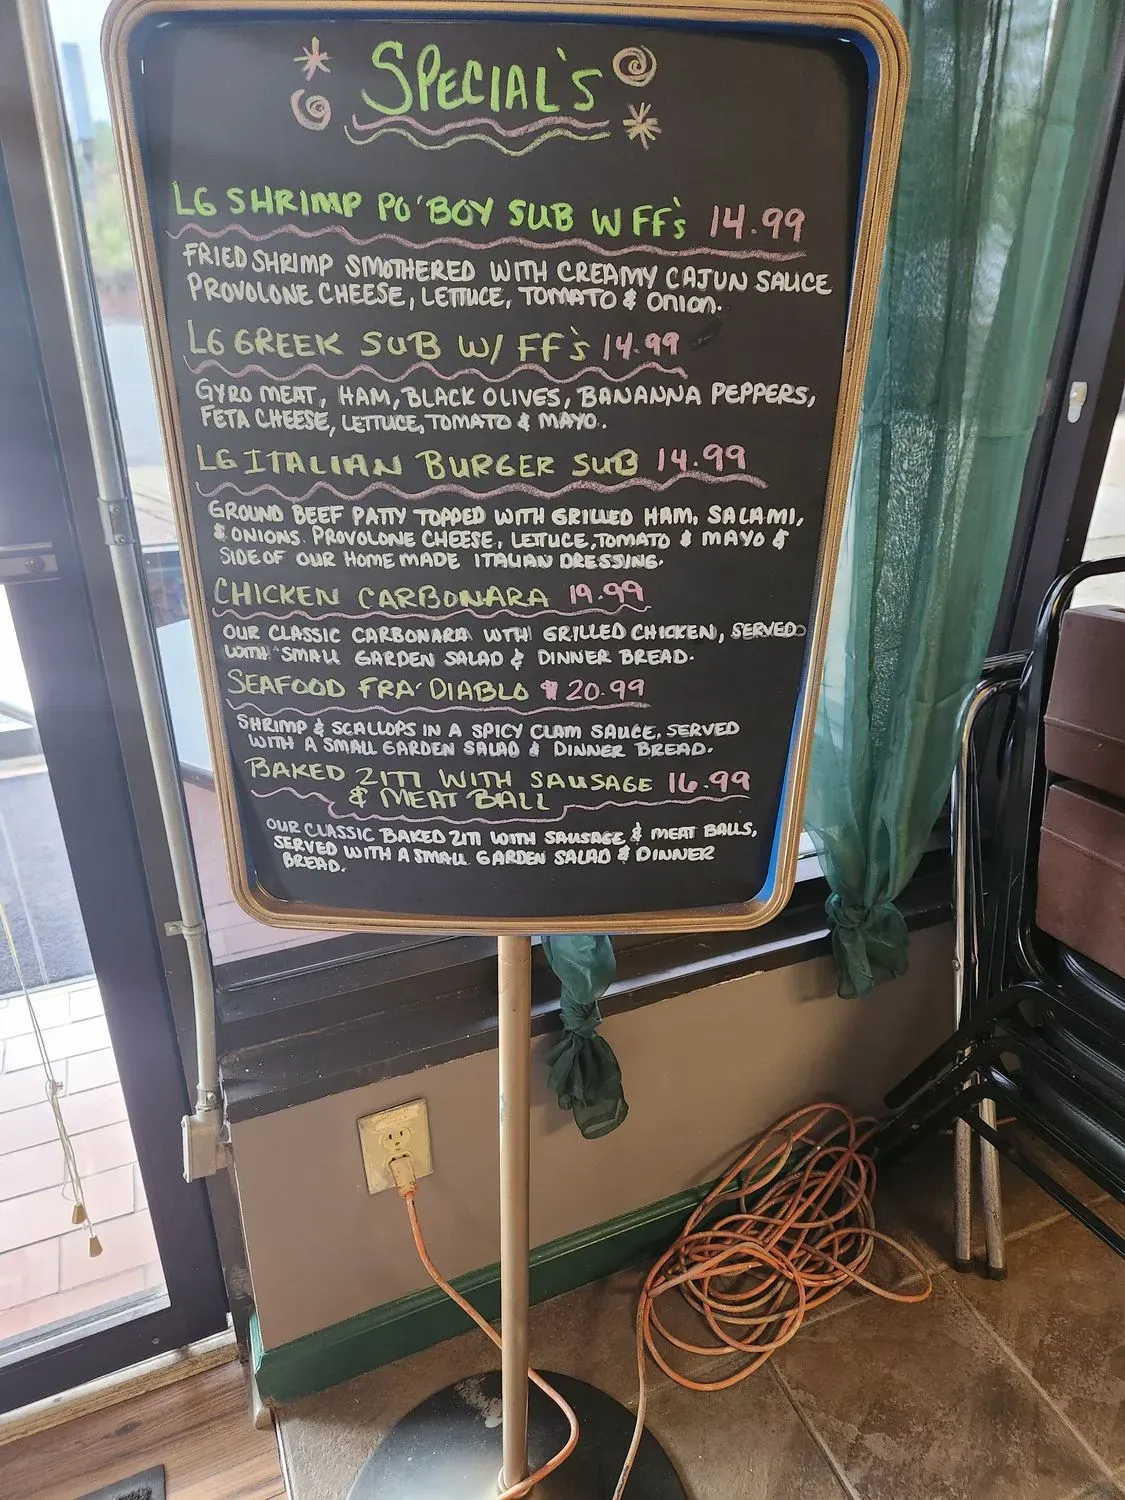 SPECIAL'S
LG SHRIMP PO'BOY SUB W FF's 14.99
FRIED SHRIMP SMOTHERED WITH CREAMY CAJUN SAUCE
PROVOLONE CHEESE, LETTUCE, TOMATO & Onion.
LG GREEK SUB W/ FF's 14.99
GYRO MEAT, HAM, BLACK OLIVES, BANANNA PEPPERS,
FETA CHEESE, LETTUCE, TOMATO & MAYO.
LG ITALIAN BURGER SUB 14.99
GROUND BEEF PATTY TOPPED WITH GRILLED HAM, SALAMI,
& ONIONS. PROVOLONE CHEESE, LETTUCE, TOMATO & MAYO &
SIDE OF OUR HOME MADE ITALIAN DRESSING.
CHICKEN CARBONARA 19.99
OUR CLASSIC CARBONARA WITH GRILLED CHICKEN, SERVED
WITH SMALL GARDEN SALAD & DINNER BREAD.
SEAFOOD FRA' DIABLO $20.99
SHRIMP & SCALLOPS IN A SPICY CLAM SAUCE, SERVED
WITH A SMALL GARDEN SALAD & DINNER BREAD.
BAKED ZITI WITH SAUSAGE 16.99
& MEAT BALL
OUR CLASSIC BAKED ZITI WITH SAUSAGE & MEAT BALLS,
SERVED WITH A SMALL GARDEN SALAD & DINNER
BREAD.